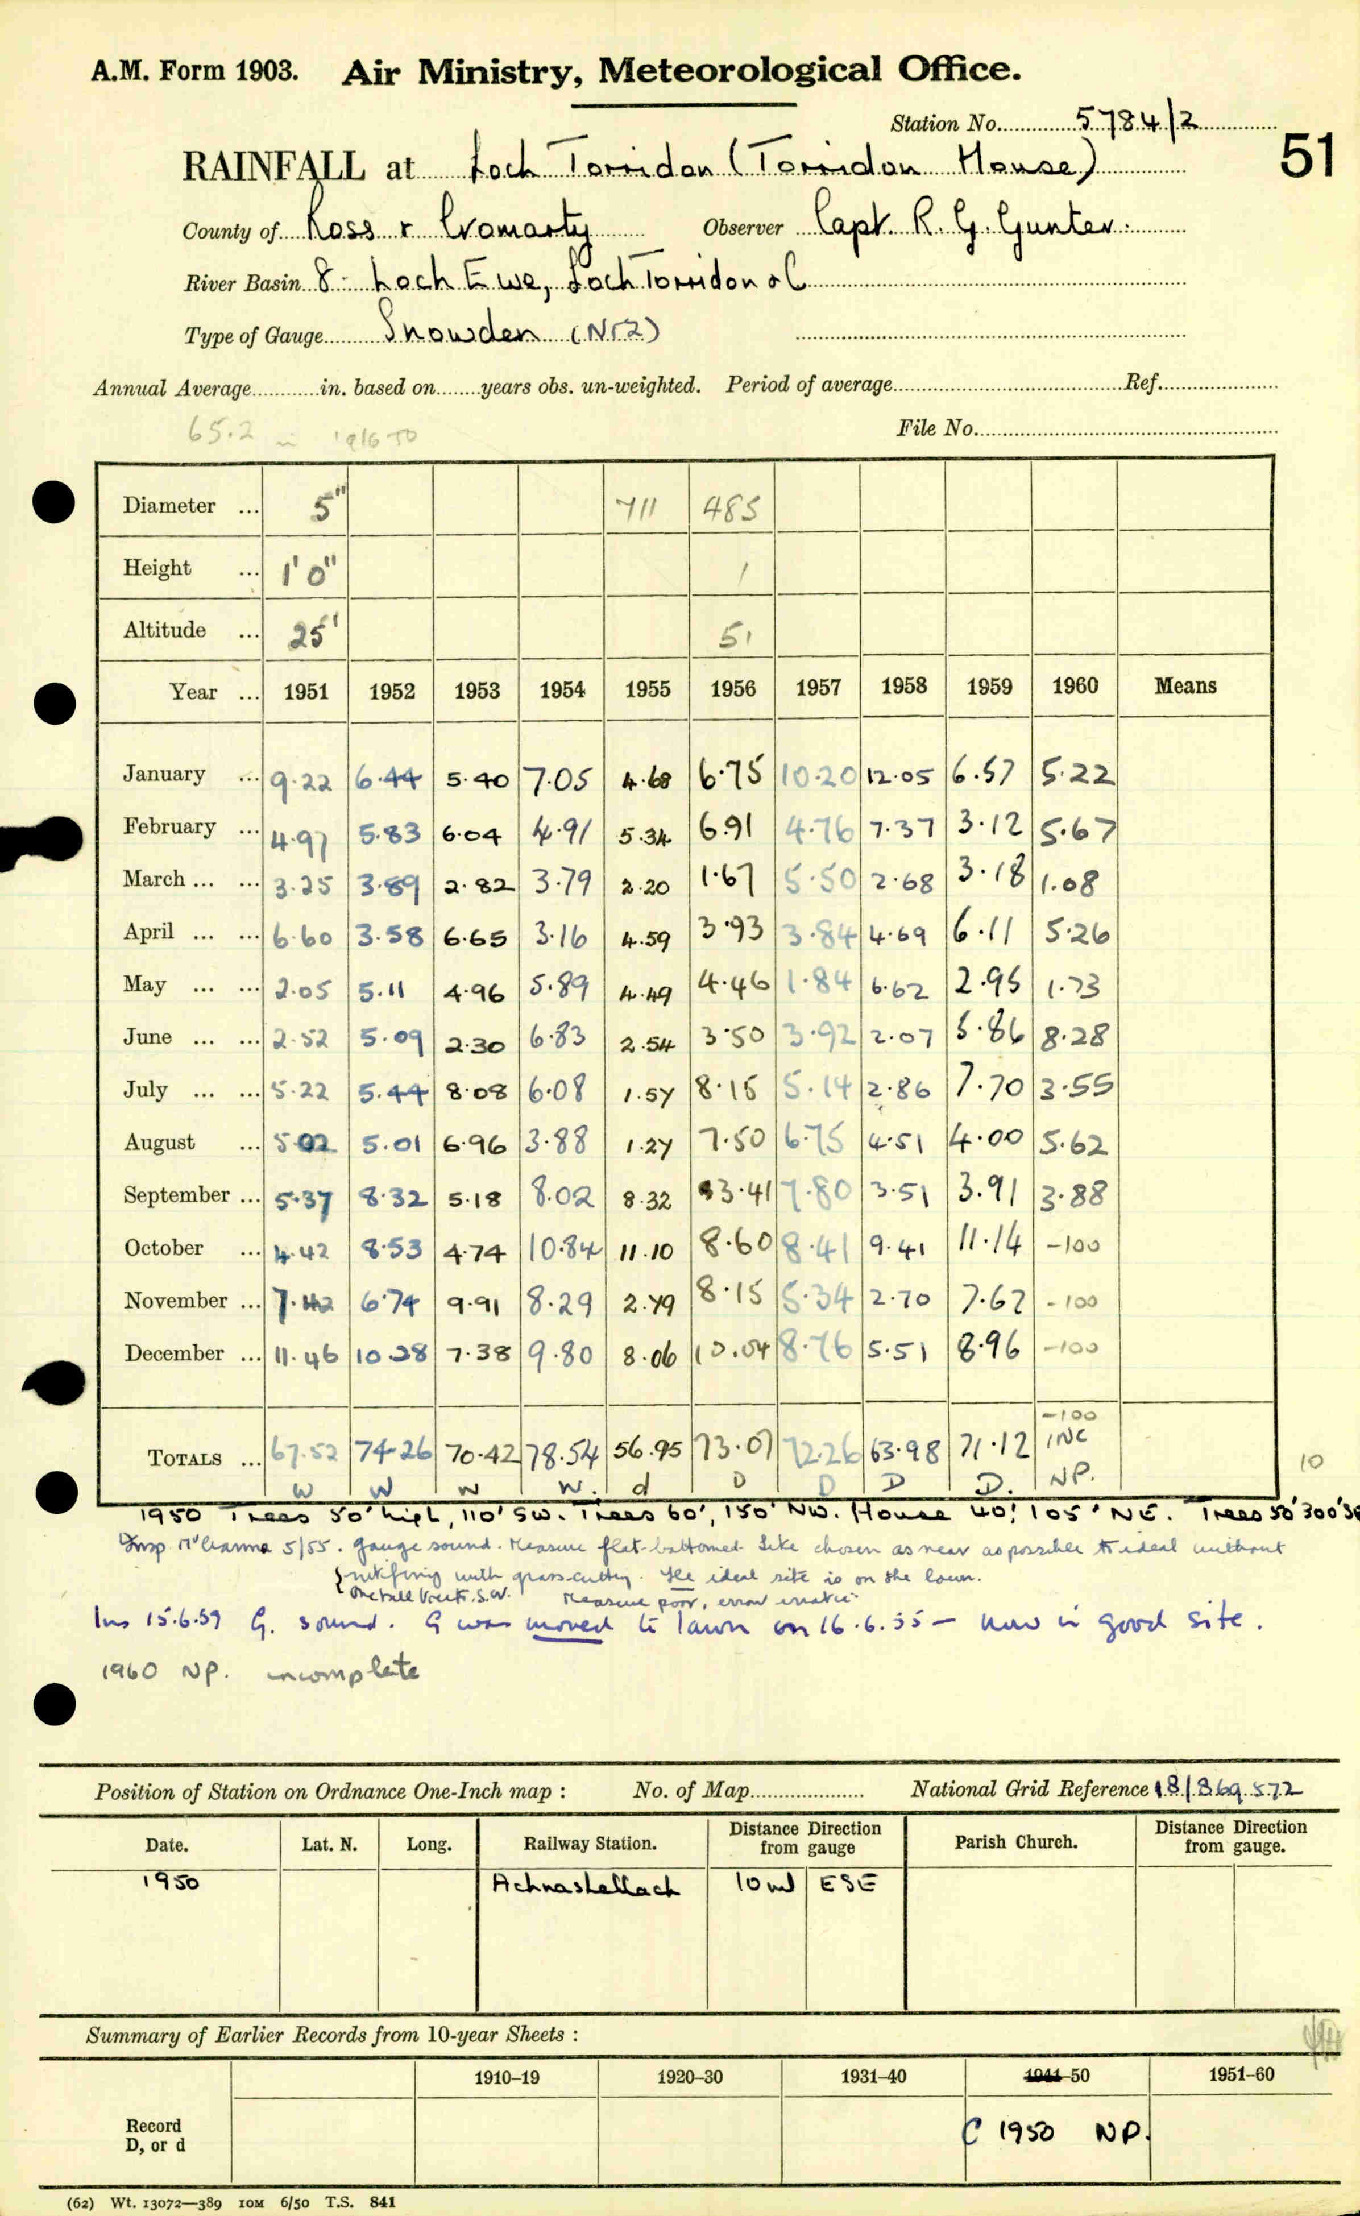 A.M. Form 1903. Air Ministry, Meteorological Office.
Station No. 5784/2
RAINFALL at Loch Torridon (Torridon House) 51
County of Ross & Cromarty Observer Capt. R. G. Gunter.
River Basin 8 - Loch Ewe, Loch Torridon & C
Type of Gauge Snowden (N52)
Annual Average in. based on years obs. un-weighted. Period of average Ref.
65.2 in 1916 50 File No.
Diameter ... 5" 711 485
Height ... 1' 0" 1
Altitude ... 25' 51
Year ... 1951 1952 1953 1954 1955 1956 1957 1958 1959 1960 Means
January ... 9.22 6.44 5.40 7.05 4.68 6.75 10.20 12.05 6.57 5.22
February ... 4.97 5.83 6.04 4.91 5.34 6.91 4.76 7.37 3.12 5.67
March ... ... 3.25 3.89 2.82 3.79 2.20 1.67 5.50 2.68 3.18 1.08
April ... ... 6.60 3.58 6.65 3.16 4.59 3.93 3.84 4.69 6.11 5.26
May ... ... 2.05 5.11 4.96 5.89 4.49 4.46 1.84 6.62 2.95 1.73
June ... ... 2.52 5.09 2.30 6.83 2.54 3.50 3.92 2.07 5.86 8.28
July ... ... 5.22 5.44 8.08 6.08 1.57 8.15 5.14 2.86 7.70 3.55
August ... 5.02 5.01 6.96 3.88 1.27 7.50 6.75 4.51 4.00 5.62
September ... 5.37 8.32 5.18 8.02 8.32 3.41 7.80 3.51 3.91 3.88
October ... 4.42 8.53 4.74 10.84 11.10 8.60 8.41 9.41 11.14 -100
November ... 7.42 6.74 9.91 8.29 2.79 8.15 5.34 2.70 7.62 -100
December ... 11.46 10.28 7.38 9.80 8.06 10.04 8.76 5.51 8.96 -100
-100
TOTALS ... 67.52 74.26 70.42 78.54 56.95 73.07 72.26 63.98 71.12 INC 10
W W W W. d D D D D. NP.
1950 Trees 50' high, 110' SW. Trees 60', 150' NW. House 40', 105' NE. Trees 50' 300' SE
Insp 5/55. gauge sound. Measure flat-bottomed. Site chosen as near as possible to ideal without
with grass-cutting. The ideal site is on the lawn.
Measure poor, error erratic.
Ins 15.6.59 G. sound. G was moved to lawn on 16.6.55 - now in good site.
1960 NP. incomplete
Position of Station on Ordnance One-Inch map : No. of Map National Grid Reference 18/869.572
Date. Lat. N. Long. Railway Station. Distance from Direction gauge Parish Church. Distance from Direction gauge.
1950 Achnashellach 10 ml ESE
Summary of Earlier Records from 10-year Sheets :
1910-19 1920-30 1931-40 1941-50 1951-60
Record
D, or d C 1950 NP.
(62) Wt. 13072-389 10M 6/50 T.S. 841